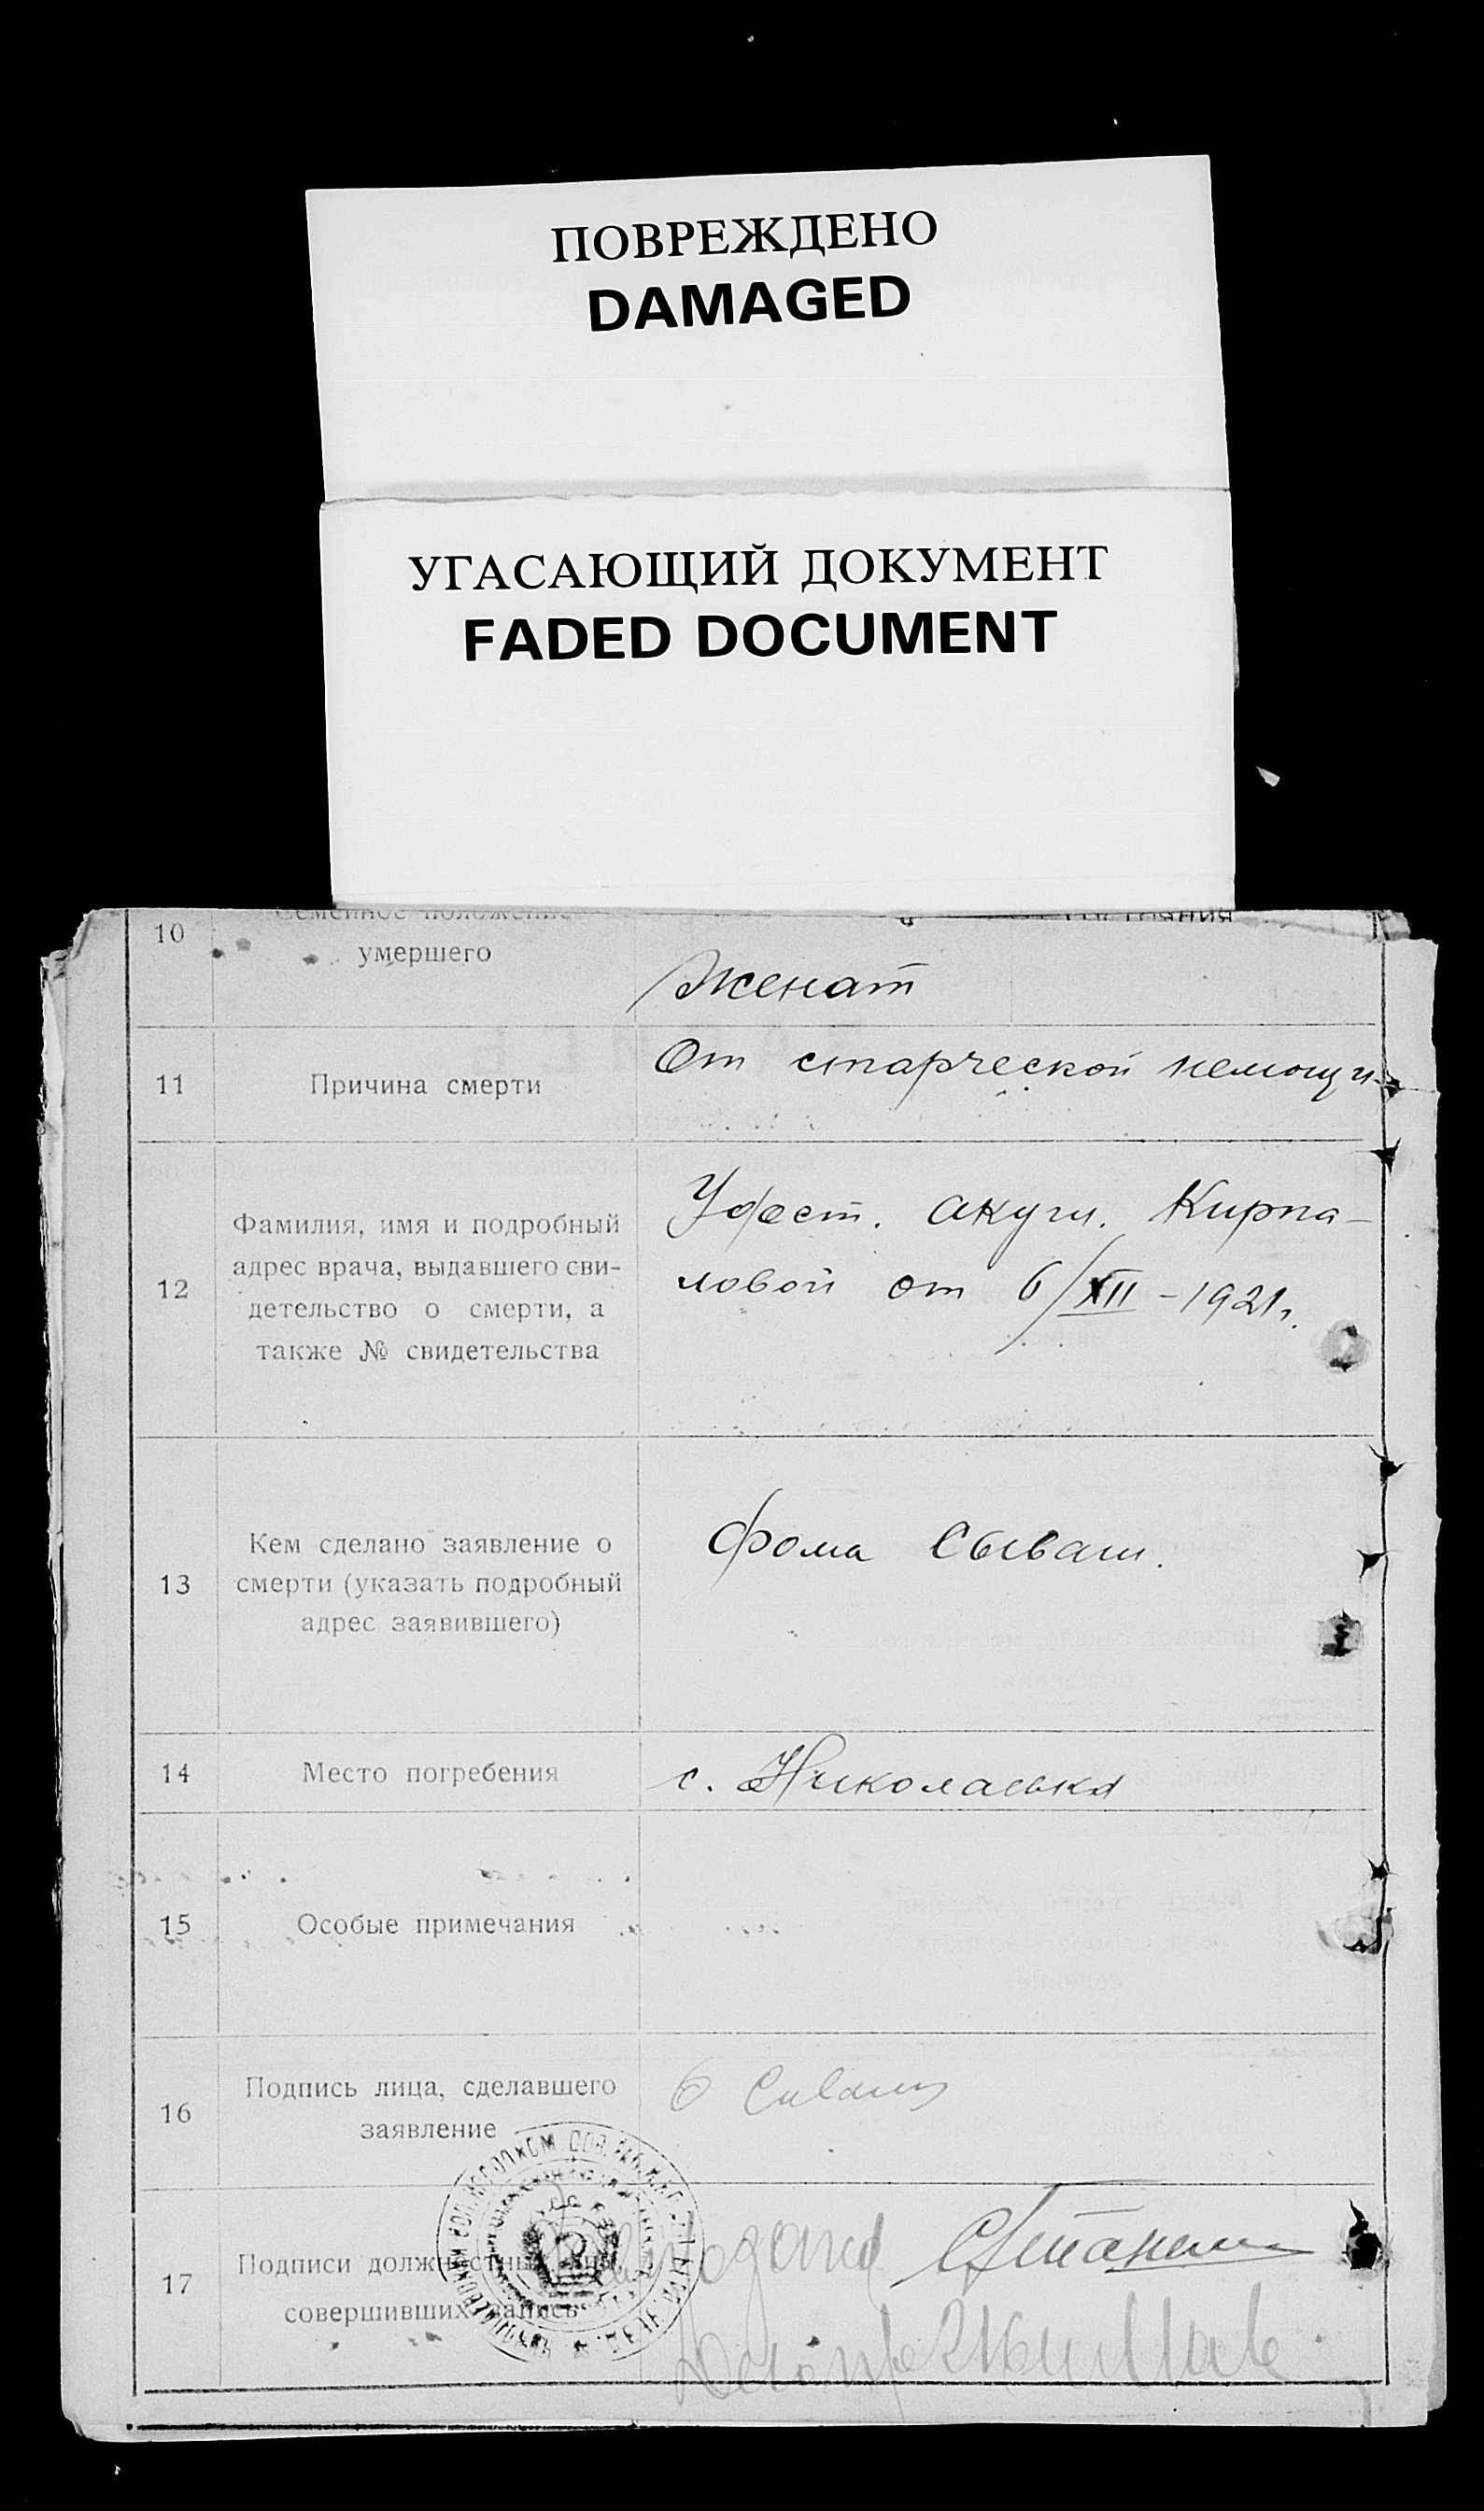 ПОВРЕЖДЕНО
DAMAGED
УГАСАЮЩИЙ ДОКУМЕНТ
FADED DOCUMENT
10
Семейное положение
умершего
Женат
11
Причина смерти
От старческой немощи
12
Фамилия, имя и подробный
адрес врача, выдавшего сви-
детельство о смерти, а
также № свидетельства
Удост. акуш. Кирпа-
ловой от 6/XII - 1921 г.
13
Кем сделано заявление о
смерти (указать подробный
адрес заявившего)
Фома Сываш.
14
Место погребения
с. Николаевка
15
Особые примечания
16
Подпись лица, сделавшего
заявление
17
Подписи должностных лиц,
совершивших запись